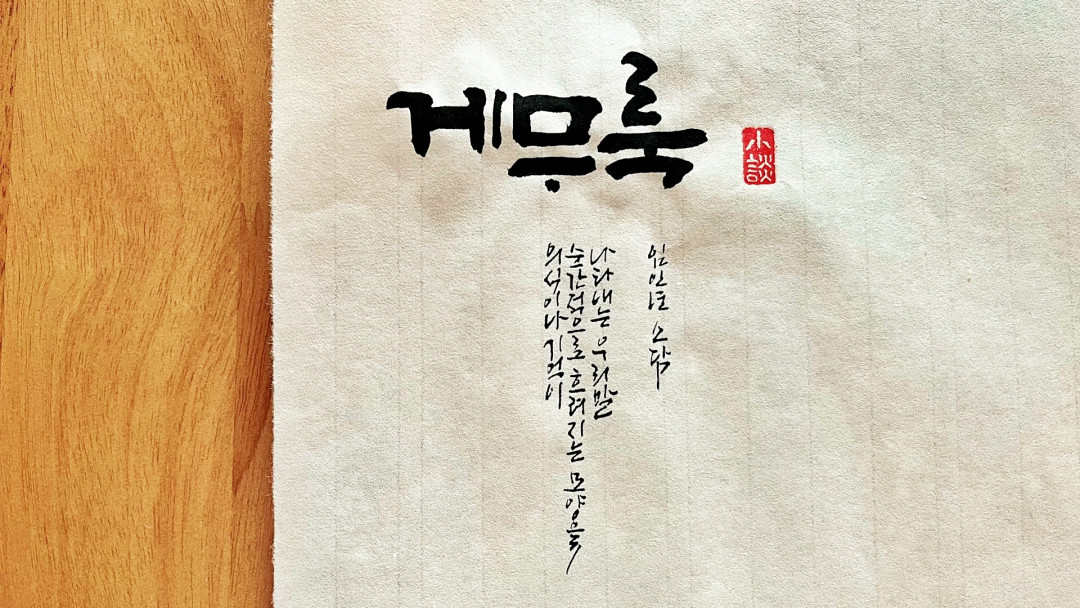 게무룩
小談
의식이나 기억이
순간적으로 흐려지는 모양을
나타내는 우리말
임인춘 소담